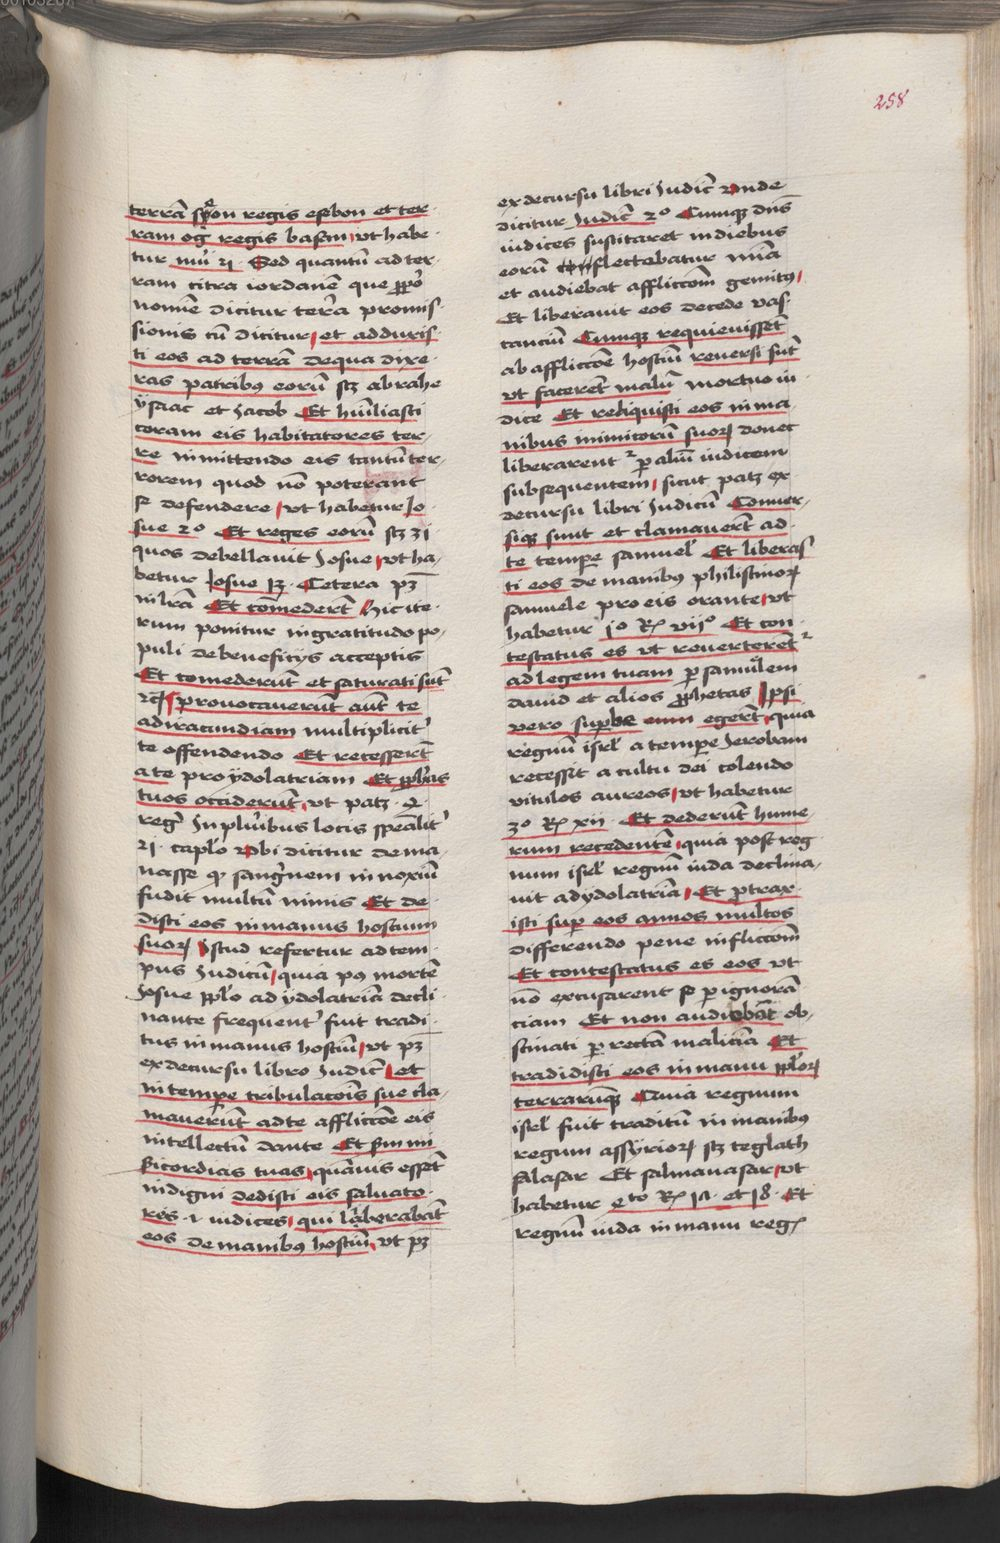 258
terrā seon regis esbon et ter-
ram og regis basan, vt habe-
tur nūi 21 Sed quantū ad ter-
ram citra iordanē que ꝓprio
nomīe dicitur terra promis-
sionis cū dicitur, et adduxis-
ti eos ad terrā de qua dixe-
ras patribꝰ eorū scꝫ abrahe
ysaac et Iacob Et hūiliasti
coram eis habitatores ter-
re inmittendo eis tantū ter-
rorem quod nō poterant
se defendere, vt habetur Io-
sue 2o Et reges eorū scꝫ 31
quos debellauit Iosue, vt ha-
betur Iosue 12 Cetera pꝫ
in lrā Et comederūt Hic ite-
rum ponitur ingratitudo po-
puli de beneficijs acceptis
Et comederūt et saturati sūt
⁊cͣ, prouocauerūt aūt te
ad iracundiam multiplicit'
te offendendo Et recesserūt
a te pro ydolatriam Et ꝓphās
tuos occiderūt, vt patꝫ 4
reg' In pluribus locis spēalit'
21 capl'o vbi dicitur de ma-
nasse ꝙ sangīnem innoxiū
fudit multū nimis Et de-
disti eos in manus hostium
suoꝝ Istud refertur ad tem-
pus Iudicū, quia pꝰ mortē
Iosue ppl'o ad ydolatriā decli-
nante frequent' fuit tradi-
tus in manus hostiū, vt pꝫ
ex decursu libro Iudic̄, et
in tempe tribulacōis sue cla-
mauerūt ad te afflictōe eis
intellectū dante Et sm mi-
sicordias tuas, quāuis essēt
indigni dedisti eis saluato-
res ⁊ iudices, qui liberabāt
eos de manibꝰ hostiū, vt pꝫ
ex decursu libri Iudic̄ vnde
dicitur Iudic̄ 2o Cumqꝫ dn̄s
iudices suscitaret in diebus
eorū flectabatur mīa
et audiebat afflictōm gemitꝰ,
Et liberauit eos de cede vas-
tanciū Cumqꝫ requieuissēt
ab afflictōe hostiū reuersi sūt
vt facerēt malū mortuo iu-
dice Et reliquisti eos in ma-
nibus inimicorū suoꝝ donec
liberarent² ꝑ aliū iudicem
subsequentem, sicut patꝫ ex
decursu libri Iudicū Conuer-
siqꝫ sunt et clamauerūt ad
te tempe samuel' Et liberas-
ti eos de manibꝰ philistinoꝝ
samuele pro eis orante, vt
habetur 1o Rͫ vijo Et con-
testatus es vt reuerterēt²
ad legem tuam ꝑ samūlem
dauid et alios ꝓphetas Ipsi
vero superbe enim egerūt, quia
regnū isrl' a tempe Ieroboam
recessit a cultu dei colendo
vitulos aureos, vt habetur
3o Rͫ xii Et dederūt hume-
rum recedentē, quia post reg-
num isrl' regnū iuda declina-
uit ad ydolatriā, Et ꝓtrax-
isti super eos annos multos
differendo pene inflictōm
Et contestatus es eos vt
nō excusarent se ꝑ ignorā-
ciam Et non audiebāt ob-
stinati ꝑ rectā maliciā Et
tradidisti eos in manu ppl'oꝝ
terrarumqꝫ Quia regnum
isrl' fuit traditū in manibꝰ
regum assyrioꝝ scꝫ teglath
falasar Et salmanasar, vt
habetur 4to Rͫ 17 et 18 Et
regnū iuda in manu reg'